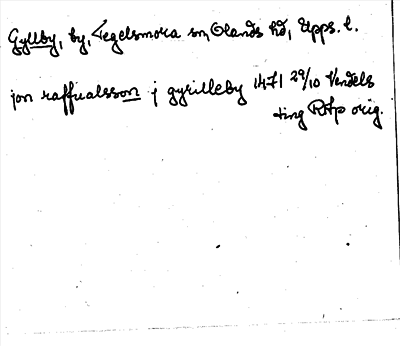 Gyllby, by, Tegelsmora sn, Olands hd, Upps. l.
jon raffualsson j gyrilleby 1471 29/10 Vendels
ting RAp orig.